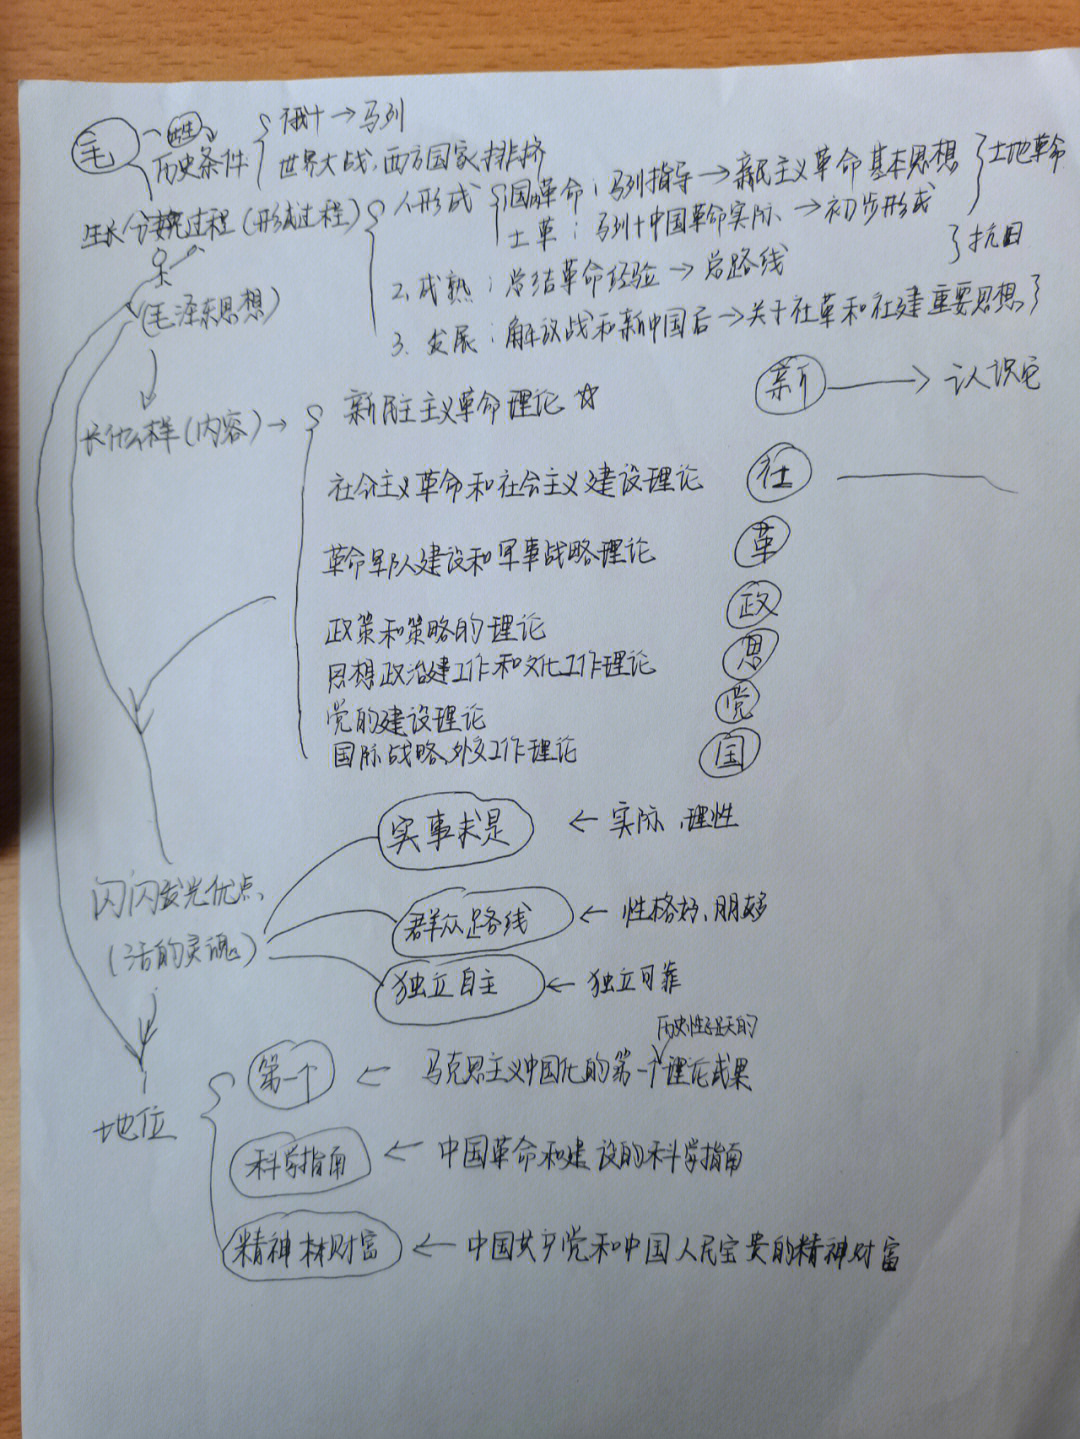 毛
历史条件
俄十→马列
世界大战、西方国家排挤
生长 过程（形成过程）
1、形成
国革命：马列指导→新民主义革命基本思想
土地革命
土革：马列+中国革命实际→初步形成
抗日
2、成熟：总结革命经验→总路线
（毛泽东思想）
3、发展：解放战和新中国后→关于社革和社建重要思想
长什么样（内容）→
新民主主义革命理论☆
新→认识它
社会主义革命和社会主义建设理论
社
革命军队建设和军事战略理论
革
政策和策略的理论
政
思想政治建工作和文化工作理论
思
党的建设理论
党
国际战略、外交工作理论
国
实事求是←实际、理性
闪闪发光优点
（活的灵魂）
群众路线←性格好、朋友多
独立自主←独立可靠
历史性飞跃的
第一个←马克思主义中国化的第一个理论成果
地位
科学指南←中国革命和建设的科学指南
精神 财富←中国共产党和中国人民宝贵的精神财富